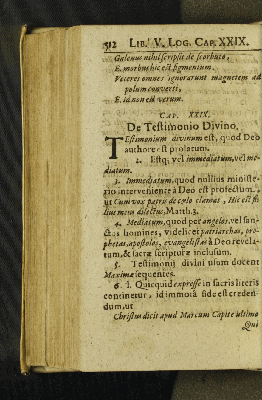 512 LIB. V. LOG. CAP. XXIX.
Galenus nihil scripsit de scorbuto,
E. morbus hic est figmentum.
Veteres omnes ignorarunt magnetem ad
polum converti,
E. id non est verum.
CAP. XXIX.
De Testimonio Divino.
Testimonium divinum est, quod Deo
authore est prolatum.
2. Estq; vel immediatum, vel me-
diatum.
3. Immediatum, quod nullius ministe-
rio interveniente à Deo est profectum.
ut Cum vox patris de cœlo clamat, Hic est fi-
lius meus dilectus, Matth. 3.
4. Mediatum, quod per angelos, vel san-
ctos homines, videlicet patriarchas, pro-
phetas, apostolos, evangelistas à Deo revela-
tum, & sacræ scripturæ inclusum.
5. Testimonij divini usum docent
Maximæ sequentes.
6. 1. Quicquid expressè in sacris literis
continetur, id immotâ fide est creden-
dum, ut
Christus dicit apud Marcum Capite ultimo
Qui